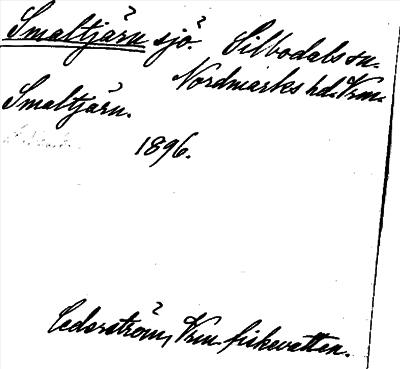 Smaltjärn sjö. Silbodals sn.
Nordmarks hd. Vrm.
Smaltjärn.
1896.
Cederström, Vrm fiskevatten.